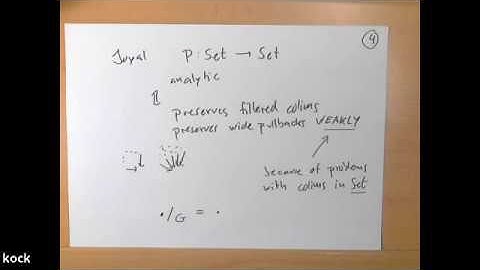 Joyal P : Set → Set
④
analytic
⇕
preserves filtered colims
preserves wide pullbacks WEAKLY
because of problems
with colims in Set
•/G = •
kock